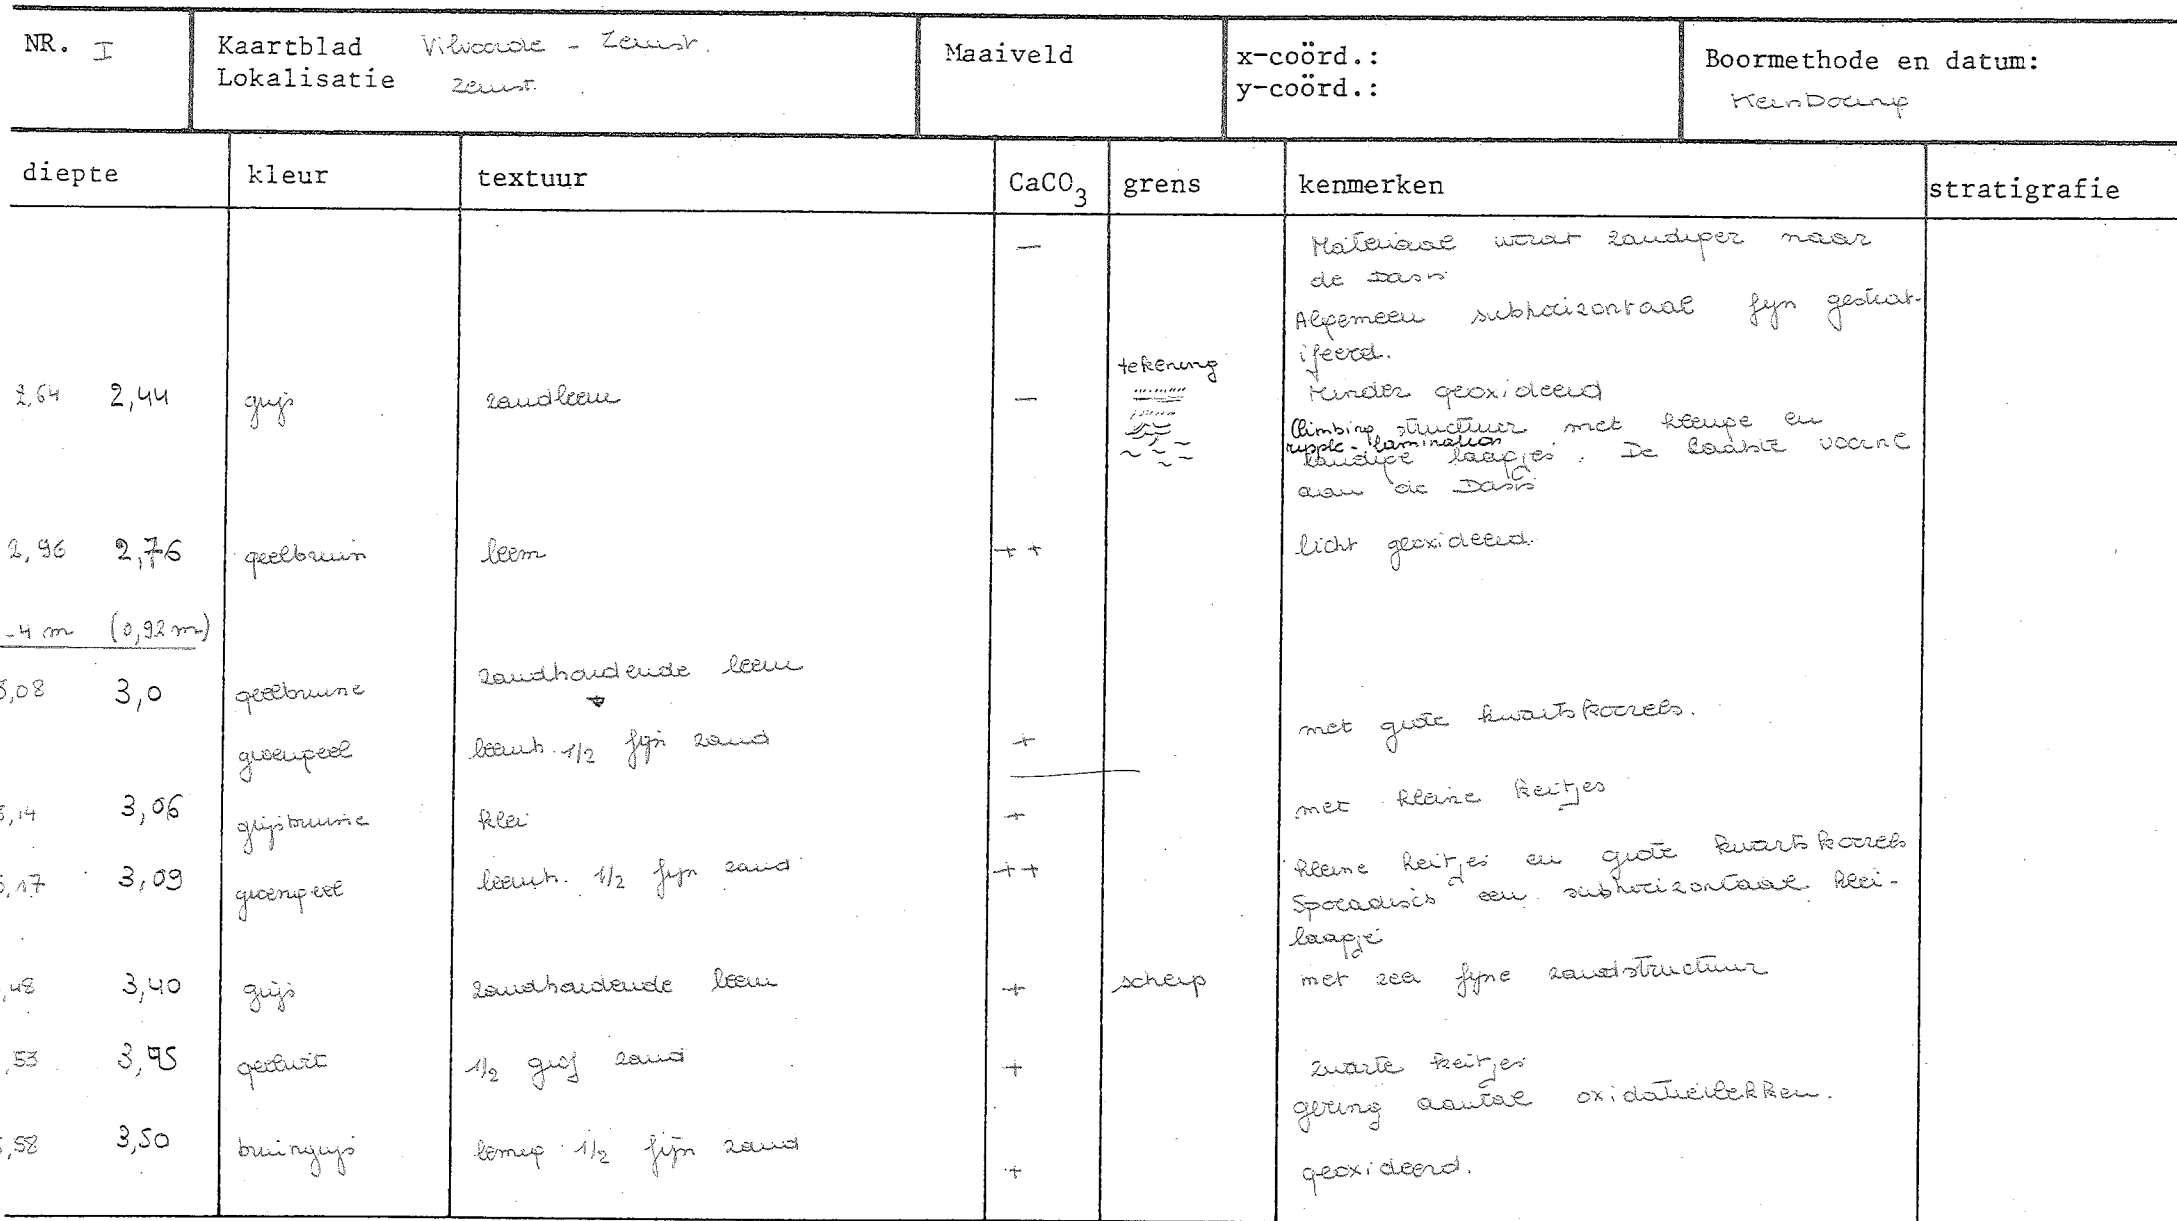 NR. I
Kaartblad Vilvoorde - Zemst.
Lokalisatie Zemst.
Maaiveld
x-coörd.:
y-coörd.:
Boormethode en datum:
Kernboring
diepte kleur textuur CaCO3 grens kenmerken stratigrafie
— Materiaal wordt zandiger naar
de basis
Algemeen subhorizontaal fijn gestrat-
ifeerd.
tekening
2,64 2,44 grijs zandleem — Minder geoxideerd
Climbing structuur met kleiige en
ripple-lamination
zandige laagjes. De laatste vooral
aan de basis
2,96 2,76 geelbruin leem ++ licht geoxideerd.
-4 m (0,92 m)
3,08 3,0 geelbruine zandhoudende leem
met grote kwartskorrels.
groengeel leemh. 1/2 fijn zand +
3,14 3,06 grijsbruine klei + met kleine keitjes
3,17 3,09 groengeel leemh. 1/2 fijn zand ++ kleine keitjes en grote kwartskorrels
Sporadisch een subhorizontaal klei-
laagje
,48 3,40 grijs zandhoudende leem + scherp met zeer fijne zandstructuur
,53 3,45 geelwit 1/2 grof zand + zwarte keitjes
gering aantal oxidatievlekken.
3,58 3,50 bruingrijs lemig 1/2 fijn zand + geoxideerd.